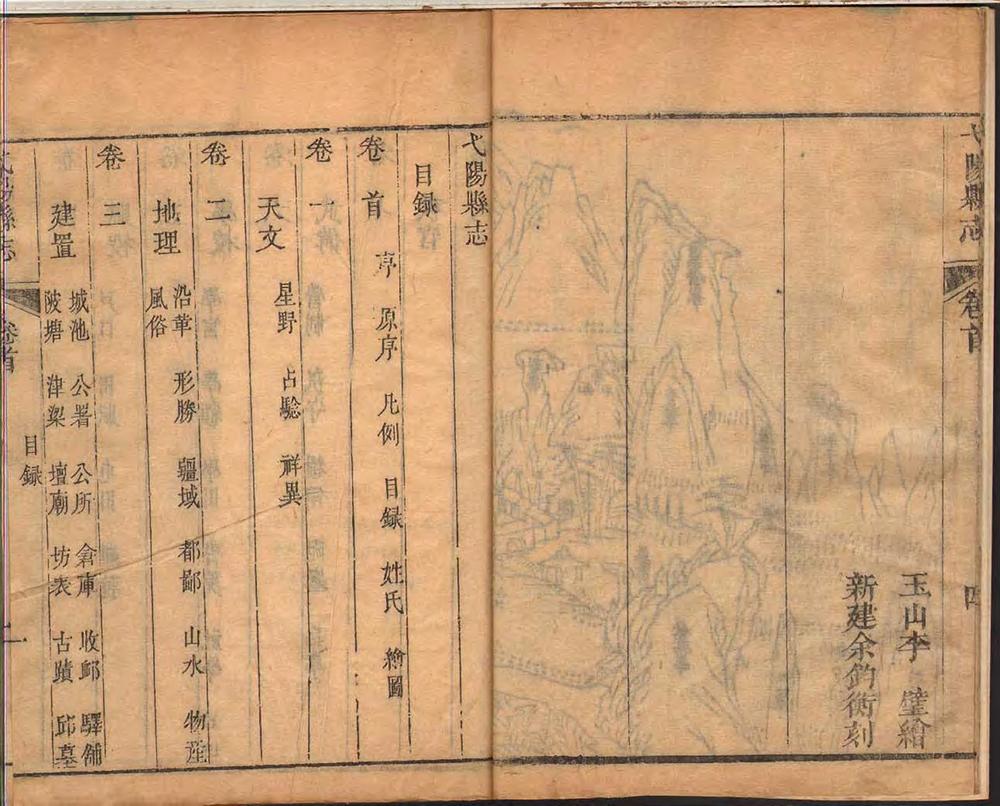 弋陽縣志
卷首
四
玉山李 璧繪
新建余鈞衡刻
弋陽縣志
目録
卷首 序 原序 凡例 目録 姓氏 繪圖
卷一
天文 星野 占驗 祥異
卷二
地理 沿革 形勝 疆域 都鄙 山水 物産
風俗
卷三
建置 城池 公署 公所 倉庫 收郵 驛舖
陂塘 津梁 壇廟 坊表 古蹟 邱墓
弋陽縣志
卷首
目録
一